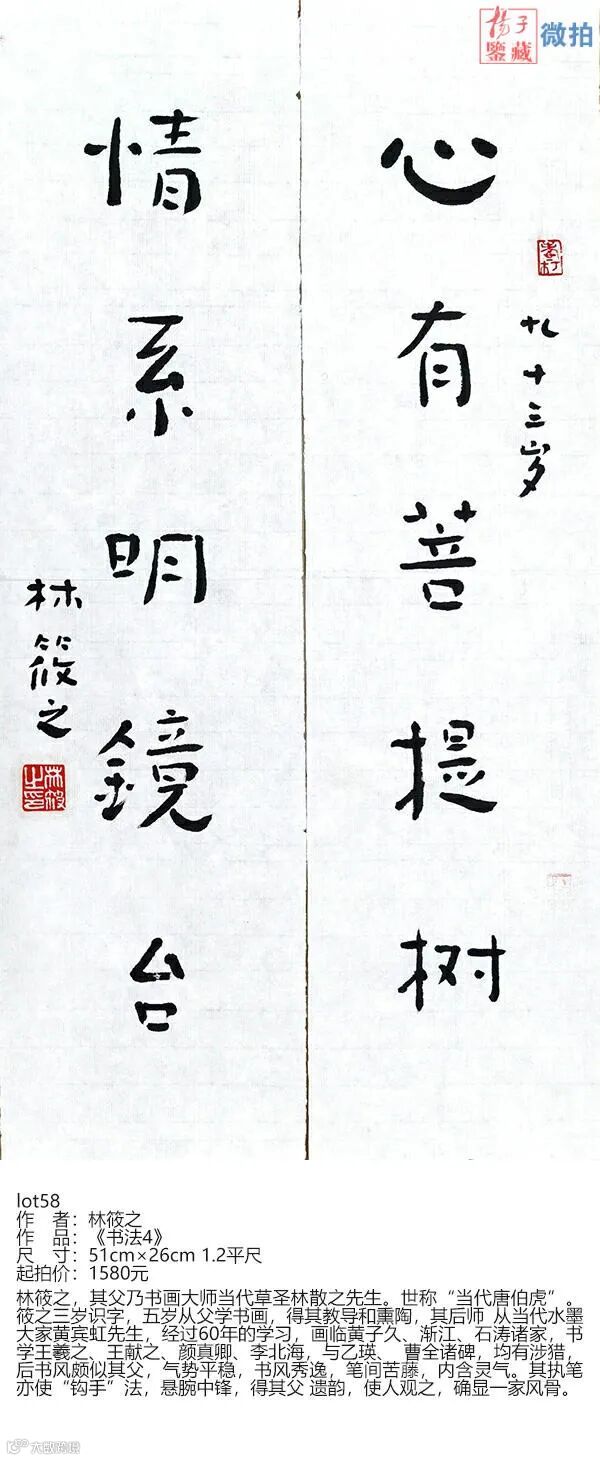 揚子
鑒藏
微拍
心有菩提树
九十三岁
情系明鏡台
林筱之
林筱
之印
lot58
作 者：林筱之
作 品：《书法4》
尺 寸：51cm×26cm 1.2平尺
起拍价：1580元
林筱之，其父乃书画大师当代草圣林散之先生。世称“当代唐伯虎”。
筱之三岁识字，五岁从父学书画，得其教导和熏陶，其后师 从当代水墨
大家黄宾虹先生，经过60年的学习，画临黄子久、渐江、石涛诸家，书
学王羲之、王献之、颜真卿、李北海，与乙瑛、 曹全诸碑，均有涉猎，
后书风颇似其父，气势平稳，书风秀逸，笔间苦藤，内含灵气。其执笔
亦使“钩手”法，悬腕中锋，得其父 遗韵，使人观之，确显一家风骨。
大欧跨境